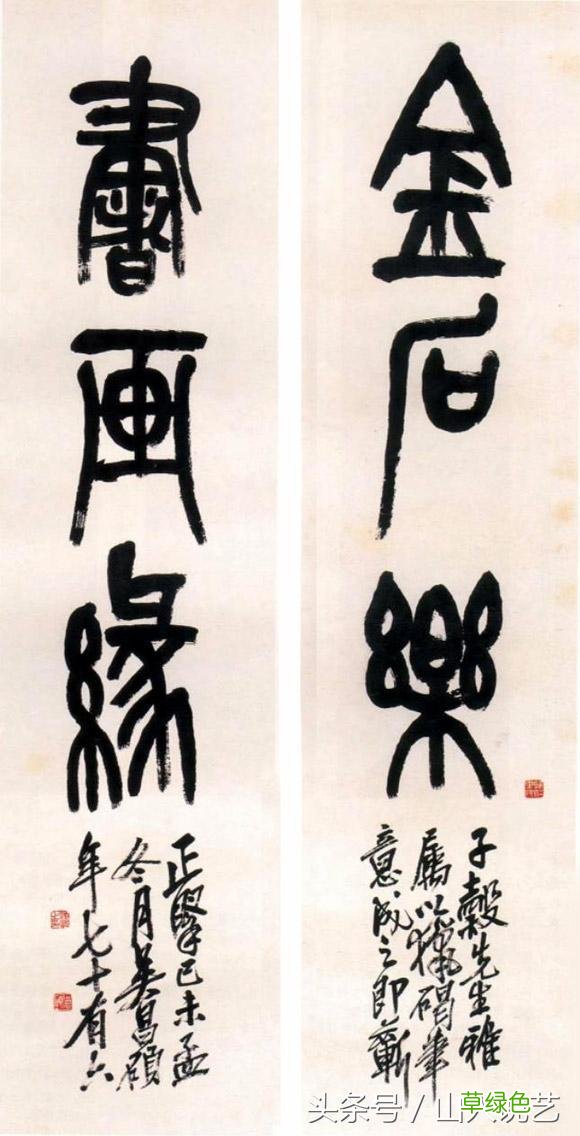 金石樂
子穀先生雅
屬以獵碣筆
意成之即蘄
書画緣
正擘己未孟
冬月吳昌碩
年七十有六
头条号／山人说艺
草绿色